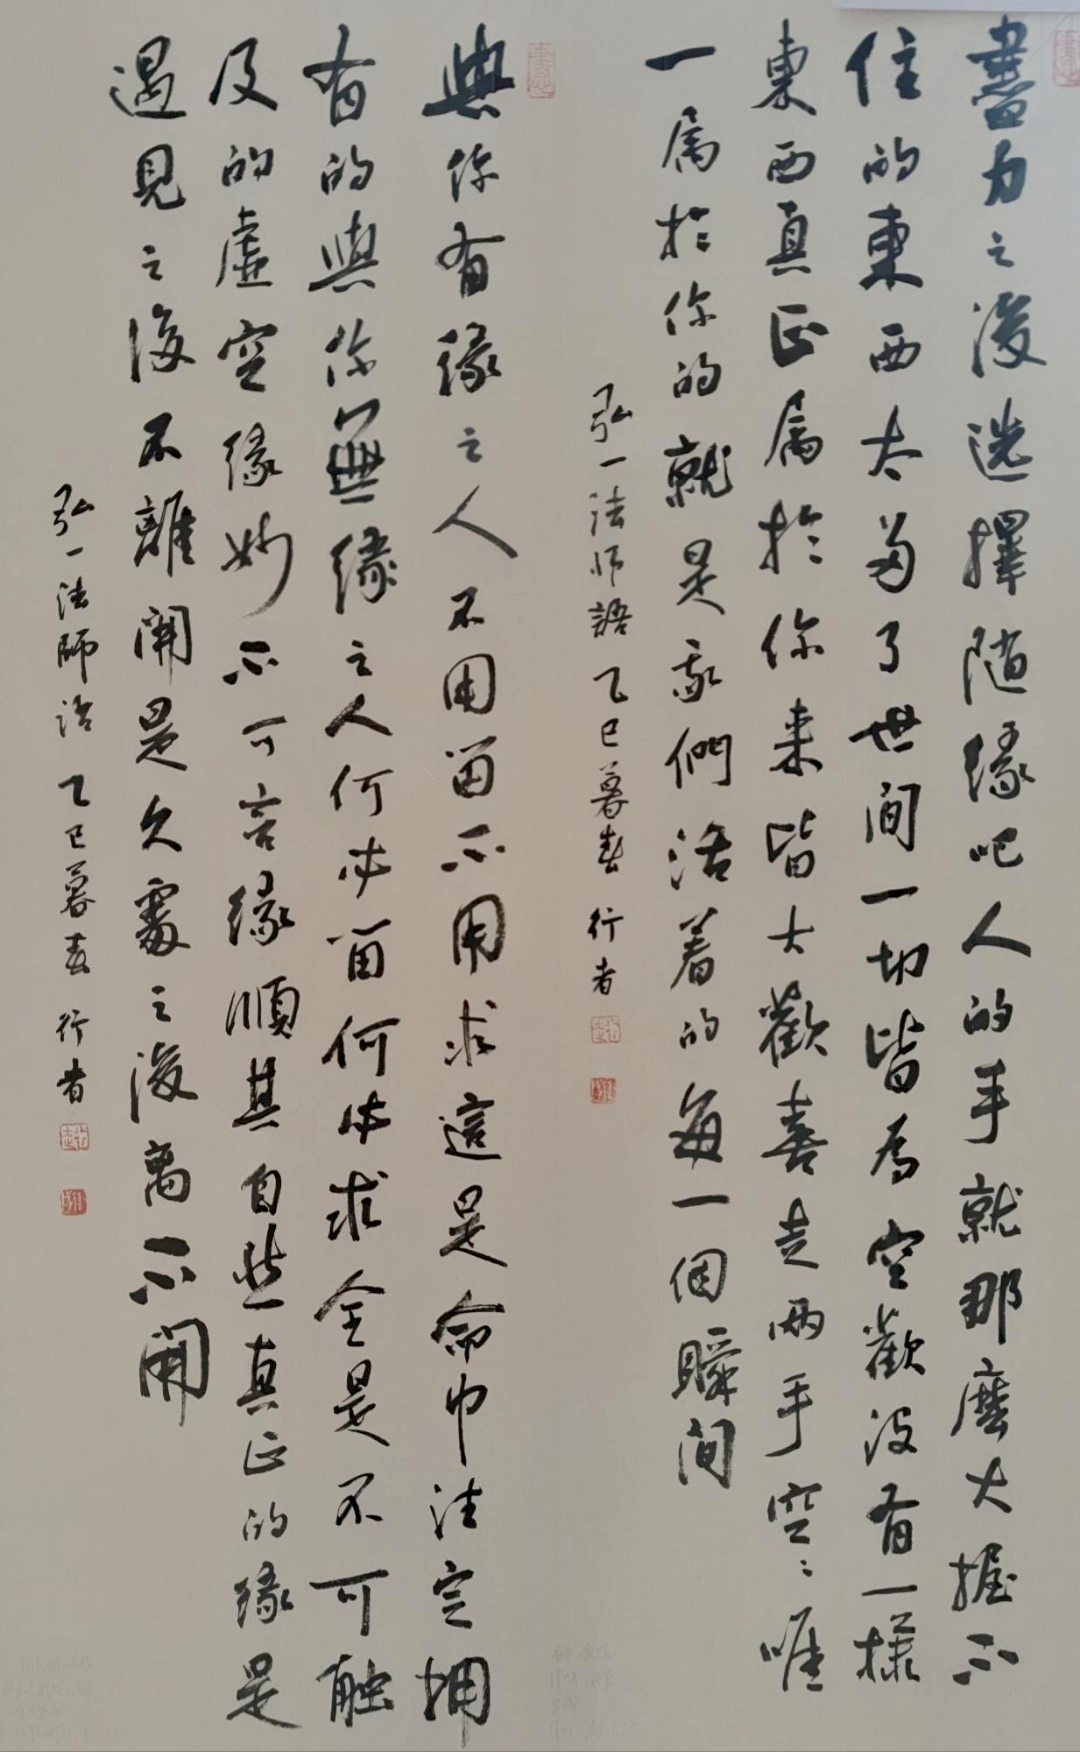 盡力之後選擇随缘吧人的手就那麼大握不
住的東西太多了世间一切皆為空歡没有一樣
東西真正属於你来皆大歡喜走两手空々唯
一属於你的就是我們活着的每一個瞬间
弘一法师語 乙巳暮春 行者
與你有缘之人不用留不用求這是命中注定拥
有的與你無缘之人何必留何必求全是不可触
及的虚空缘妙不可言缘順其自然真正的缘是
遇見之後不離開是久處之後离不開
弘一法師语 乙巳暮春 行者